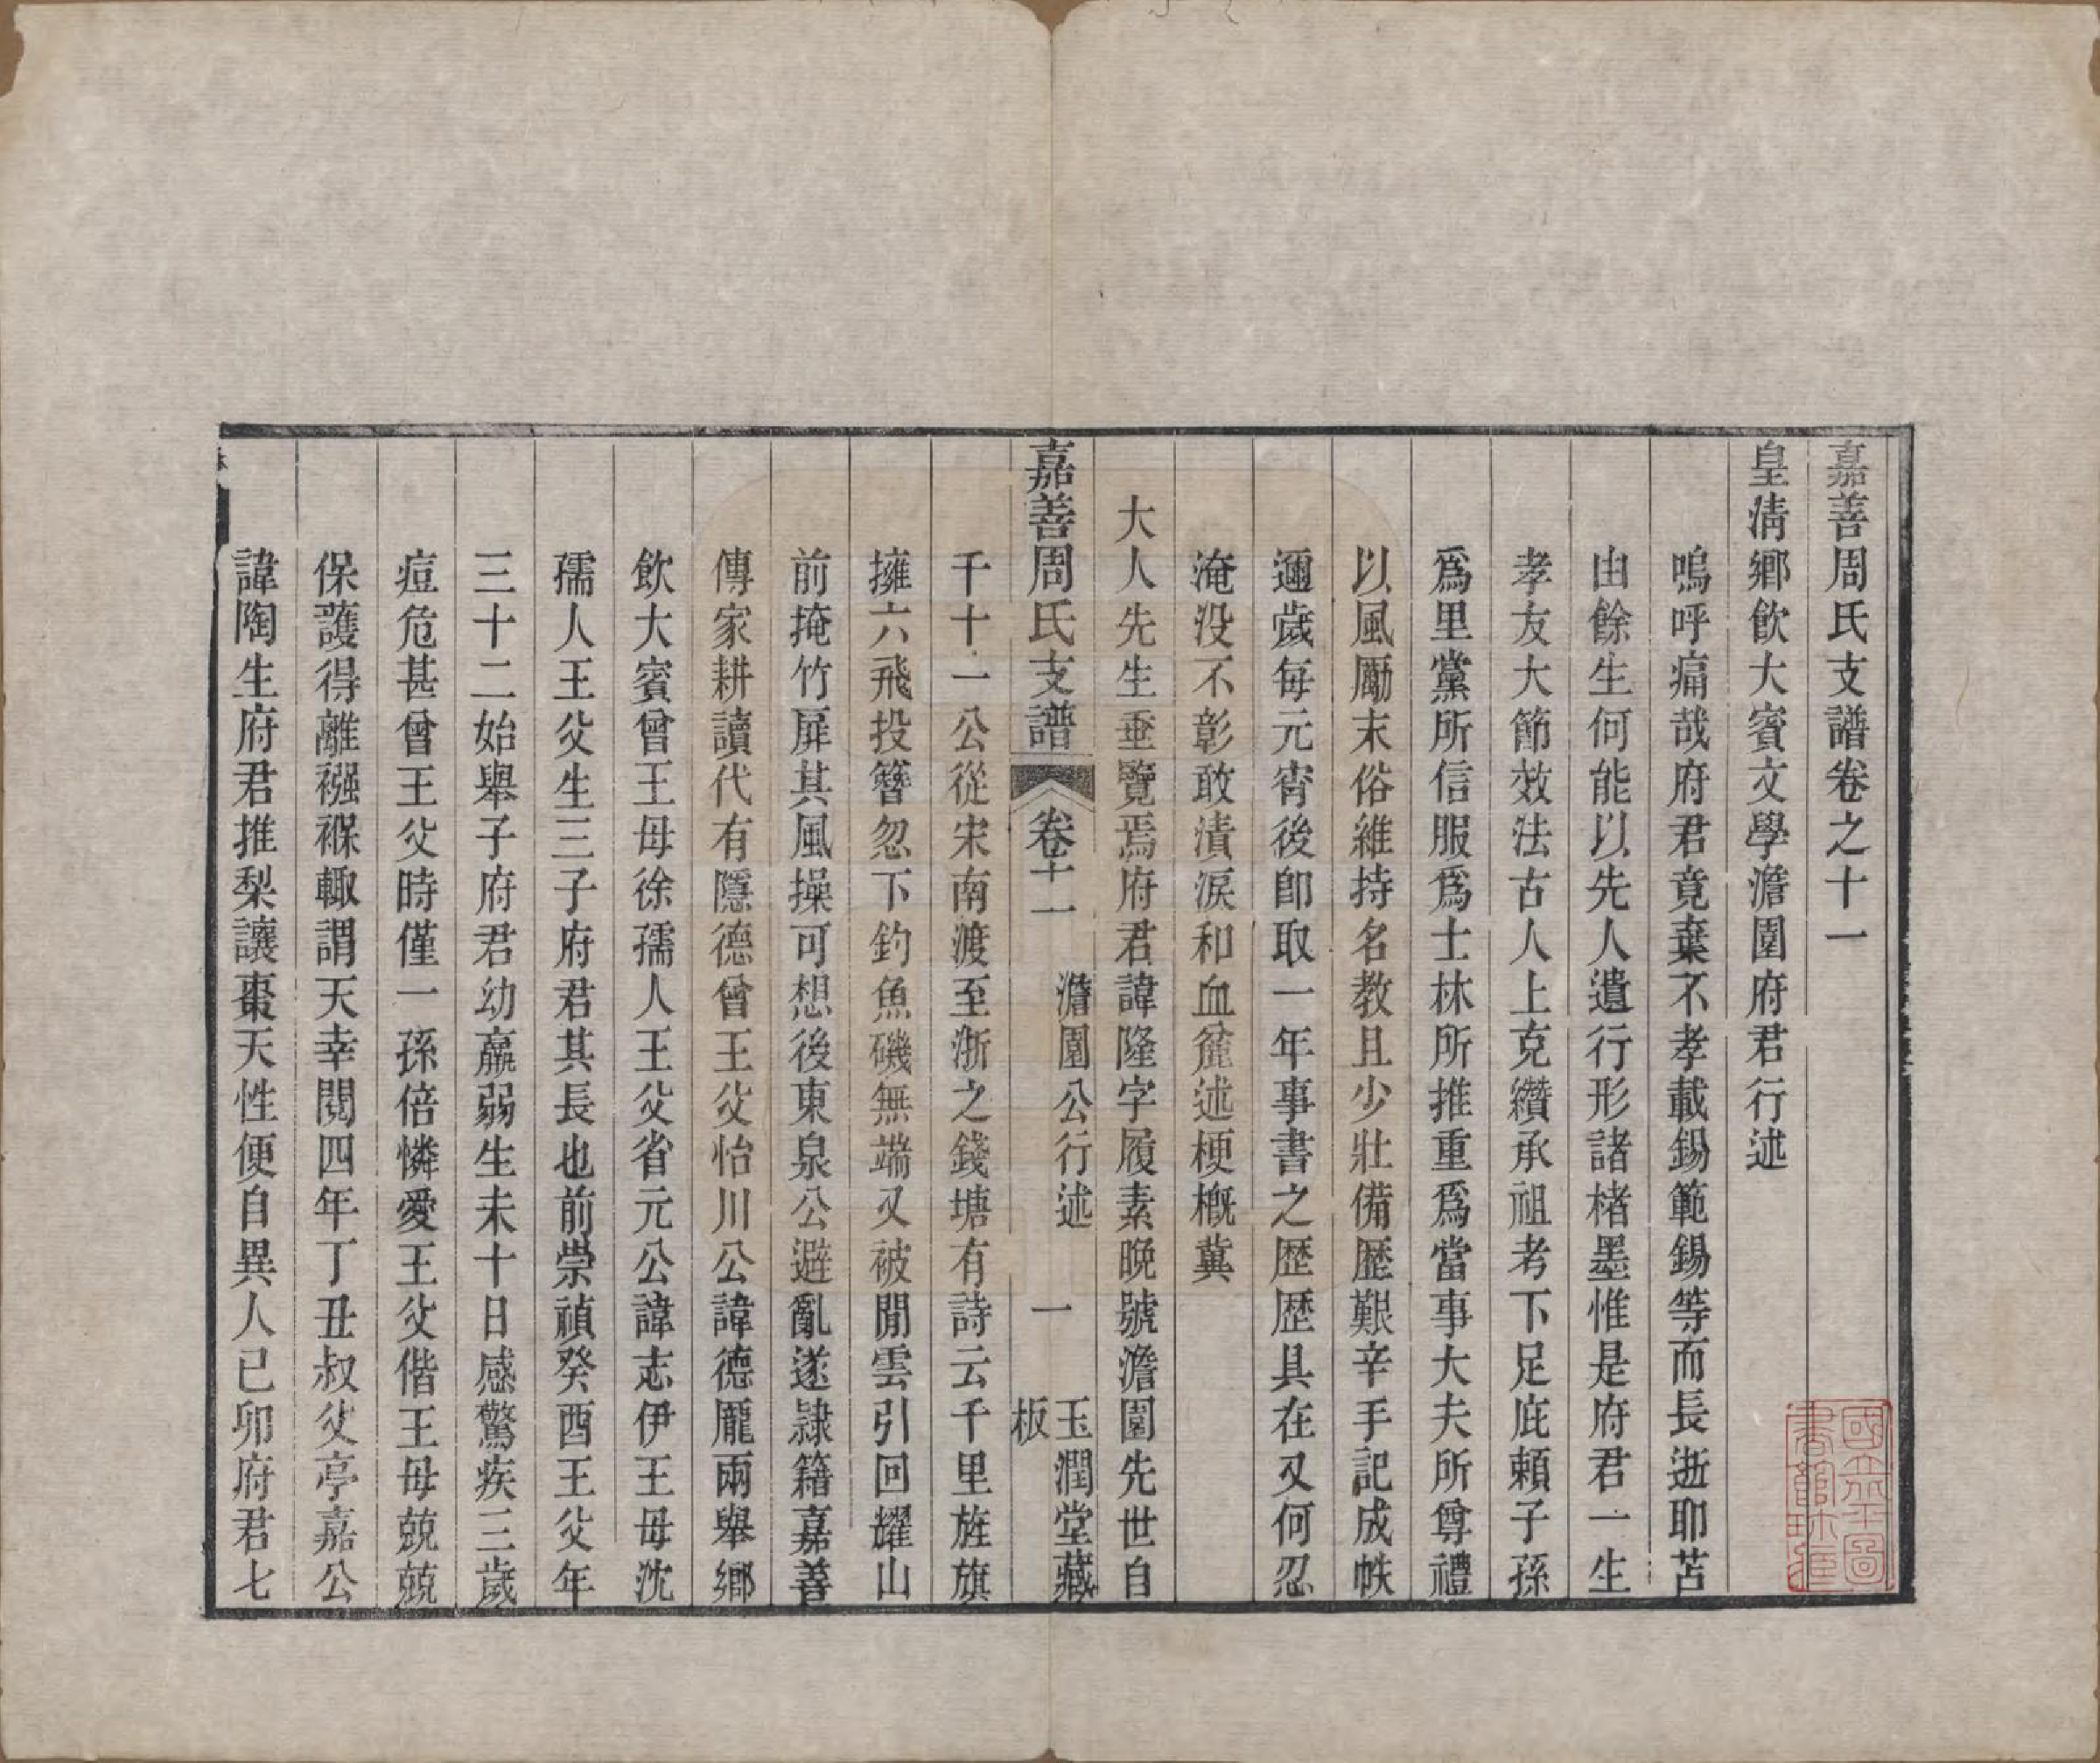 嘉善周氏支譜卷之十一
皇清鄉飲大賓文學澹園府君行述
嗚呼痛哉府君竟棄不孝載錫範錫等而長逝耶苫
由餘生何能以先人遺行形諸楮墨惟是府君一生
孝友大節效法古人上克纘承祖考下足庇賴子孫
爲里黨所信服爲士林所推重爲當事大夫所尊禮
以風勵末俗維持名教且少壯備歷艱辛手記成帙
邇歲每元宵後卽取一年事書之歷歷具在又何忍
淹没不彰敢漬淚和血麄述梗概冀
大人先生垂覽焉府君諱隆字履素晚號澹園先世自
嘉善周氏支譜 卷十一 澹園公行述 一 玉潤堂藏板
千十一公從宋南渡至浙之錢塘有詩云千里旌旗
擁六飛投簪忽下釣魚磯無端又被閒雲引回耀山
前掩竹屏其風操可想後東泉公避亂遂隸籍嘉善
傳家耕讀代有隱德曾王父怡川公諱德龎兩舉鄉
飲大賓曾王母徐孺人王父省元公諱志伊王母沈
孺人王父生三子府君其長也前崇禎癸酉王父年
三十二始舉子府君幼羸弱生未十日感驚疾三歲
痘危甚曾王父時僅一孫倍憐愛王父偕王母兢兢
保護得離襁褓輙謂天幸閱四年丁丑叔父亭嘉公
諱陶生府君推梨讓棗天性便自異人己卯府君七
國立北平圖書館珍藏